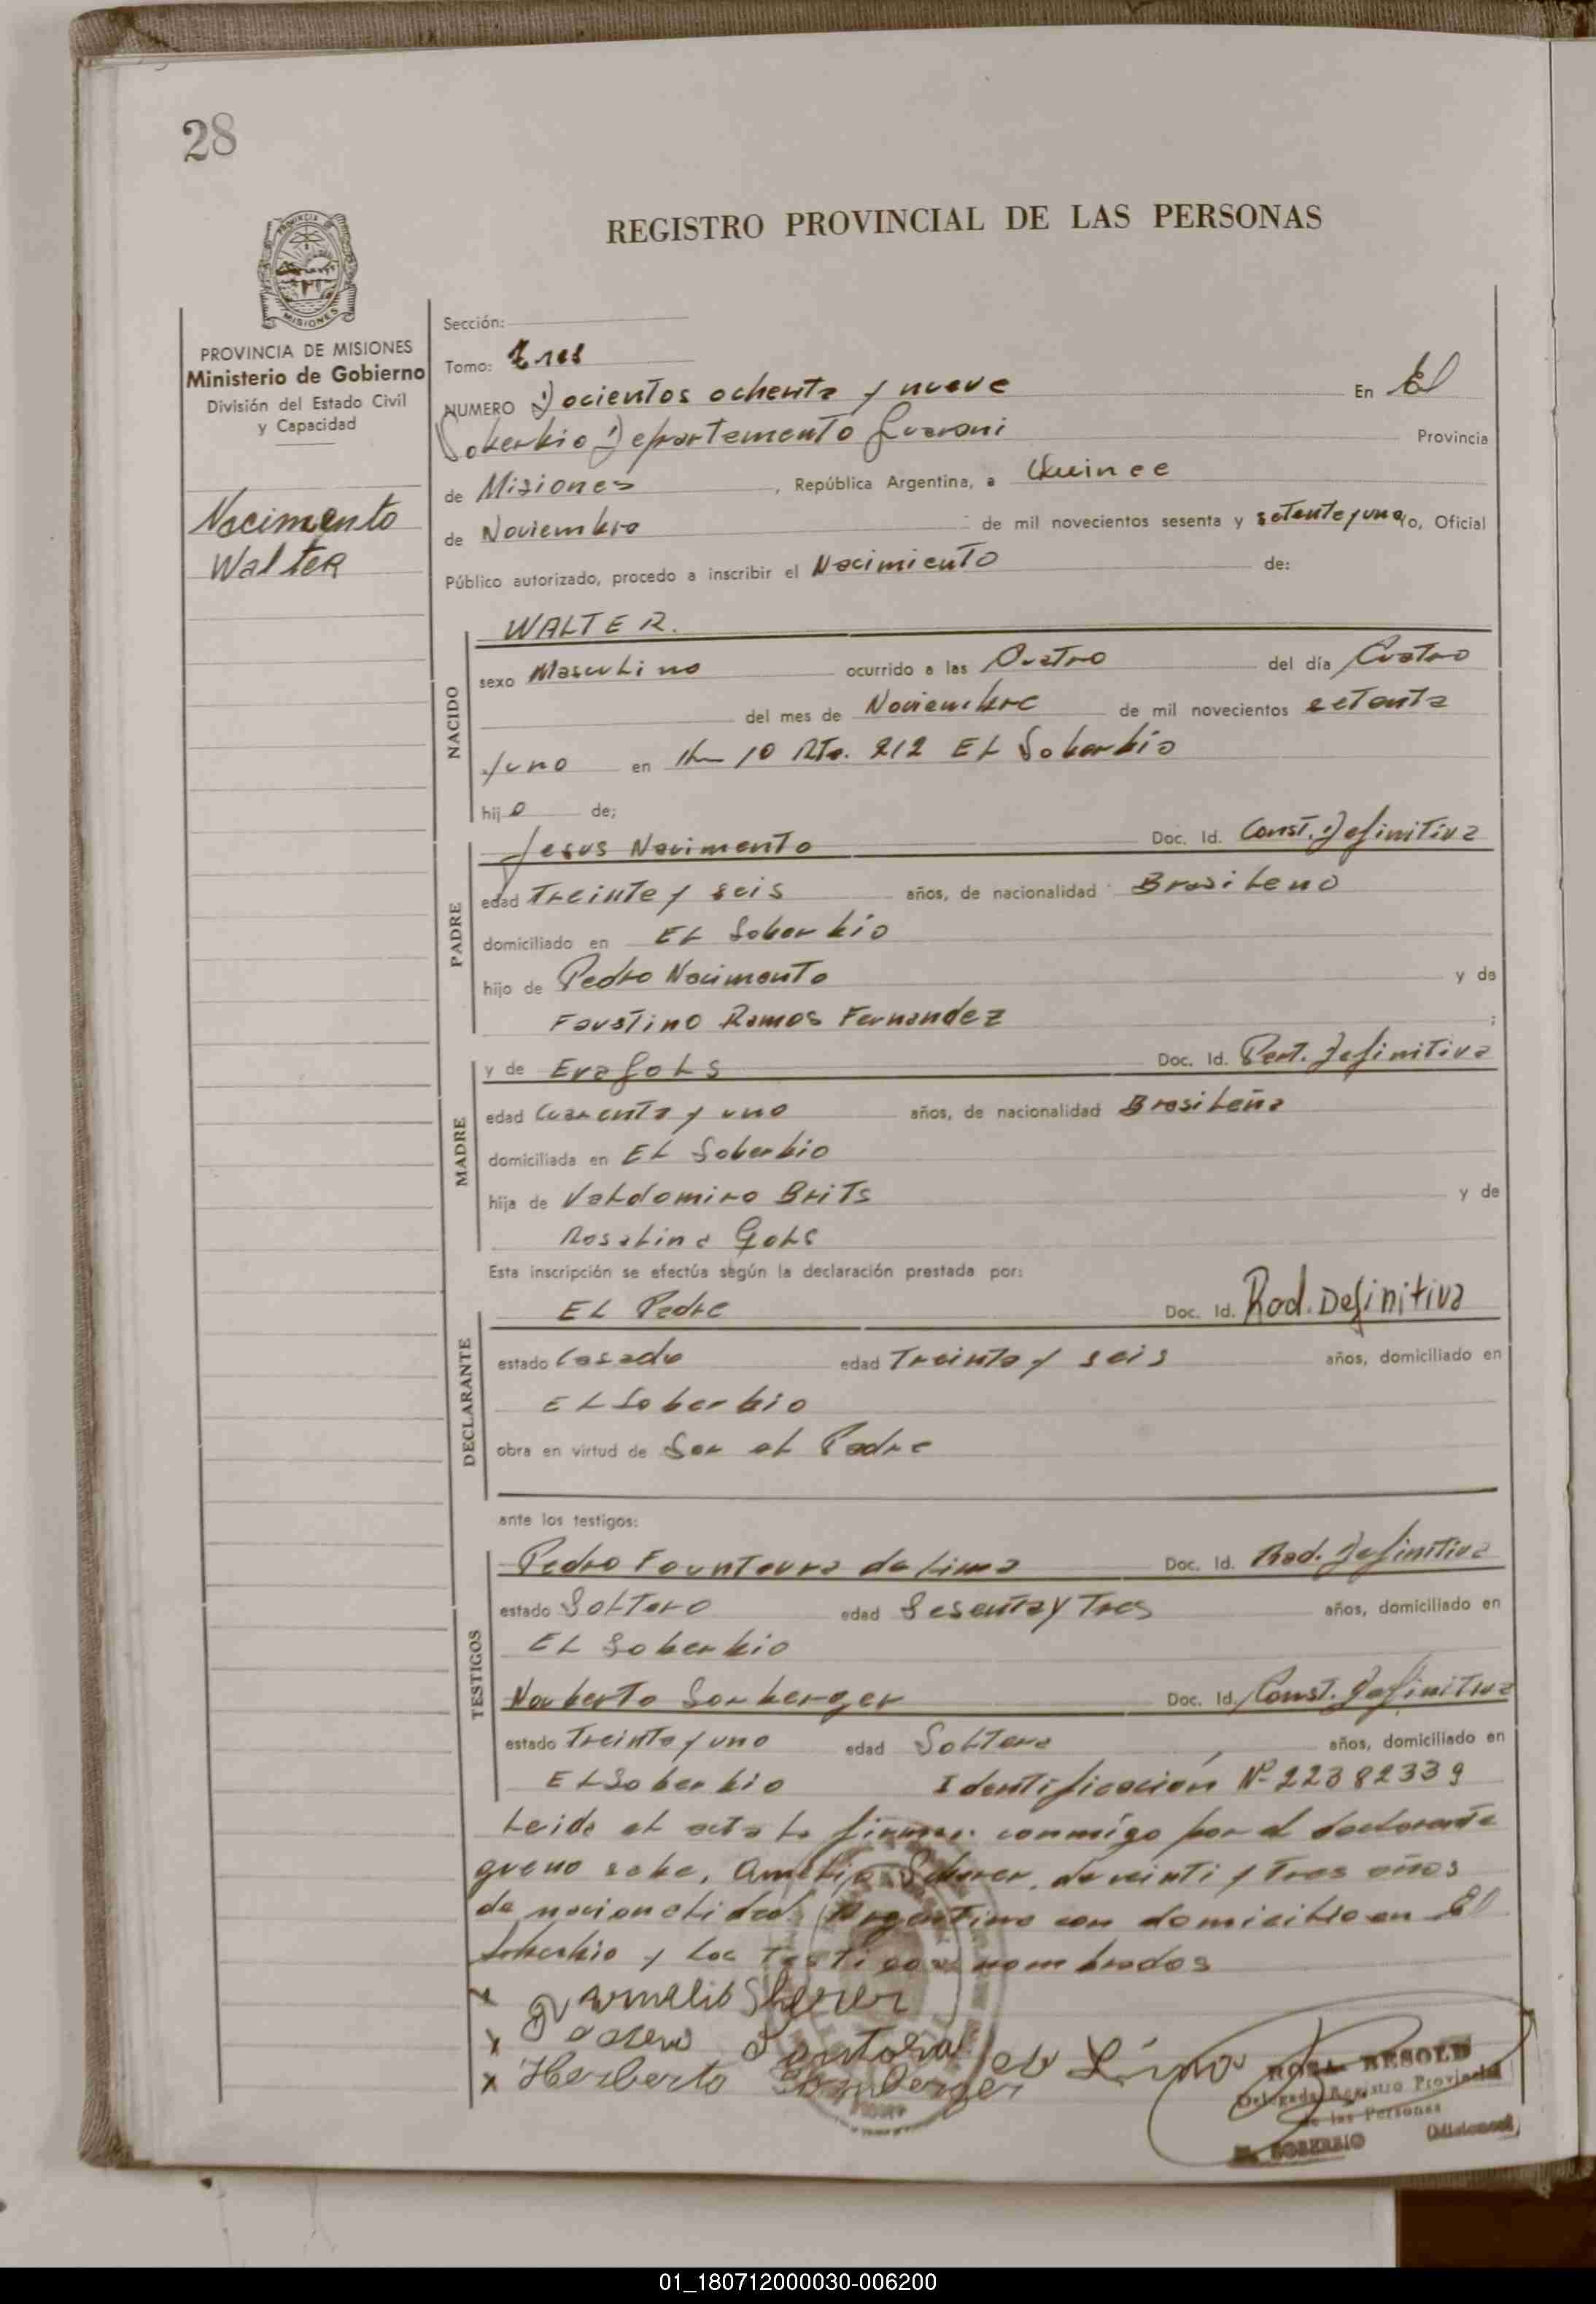 28
PROVINCIA
MISIONES
REGISTRO PROVINCIAL DE LAS PERSONAS
PROVINCIA DE MISIONES
Ministerio de Gobierno
División del Estado Civil
y Capacidad
Nacimento
Walter
Sección:
Tomo: tres
NUMERO Docientos ochenta y nueve En El
Soberbio Departamento Guarani Provincia
de Misiones, República Argentina, a Quince
de Noviembre de mil novecientos sesenta y setenta y uno yo, Oficial
Público autorizado, procedo a inscribir el Nacimiento de:
NACIDO
WALTER.
sexo Masculino ocurrido a las Cuatro del día Cuatro
del mes de Noviembre de mil novecientos setenta
y uno en Km 10 Rta. 212 El Soberbio
hijo de;
PADRE
Jesus Nacimento Doc. Id. Const. Definitiva
edad Treinta y seis años, de nacionalidad Brasileno
domiciliado en El Soberbio
hijo de Pedro Nacimento y de
Faustino Ramos Fernandez ;
MADRE
y de Eva Gols Doc. Id. Definitiva
edad Cuarenta y uno años, de nacionalidad Brasileña
domiciliada en El Soberbio
hija de Valdomiro Brits y de
Rosalina Gols
Esta inscripción se efectúa según la declaración prestada por:
DECLARANTE
El Padre Doc. Id. Rad. Definitiva
estado Casado edad Treinta y seis años, domiciliado en
El Soberbio
obra en virtud de Ser el Padre
ante los testigos:
TESTIGOS
Pedro Fountoura de Lima Doc. Id. Rad. Definitiva
estado Soltero edad Sesenta y Tres años, domiciliado en
El Soberbio
Norberto Sonberger Doc. Id. Const. Definitiva
estado Treinta y uno edad Soltero años, domiciliado en
El Soberbio Identificación Nº 22382339
Leida el acta la firman conmigo por el declarante
que no sabe, Amelio Scherer, de veinti y tres años
de nacionalidad Argentino con domicilio en El
Soberbio y los testigos nombrados
x Amelio Sherer
x de Lima
x Herberto
ROSA BESOLD
Delegada Registro Provincial
de las Personas
EL SOBERBIO (Misiones)
01_180712000030-006200